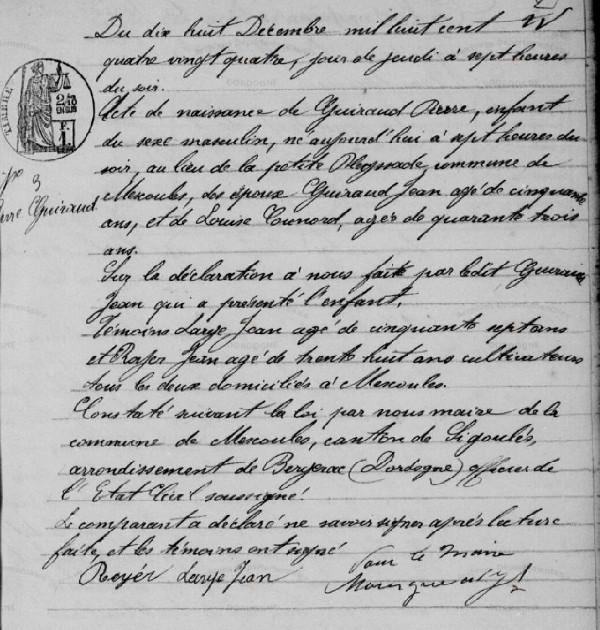 Du dix huit Décembre mil huit cent
quatre vingt quatre, jour de jeudi à sept heures
du soir.
Acte de naissance de Guiraud Pierre, enfant
du sexe masculin, né aujourd'hui à sept heures du
soir, au lieu de la petite commune de
Mescoules, des époux Guiraud Jean agé de cinquante
ans, et de Louise agée de quarante trois
ans.
Sur la déclaration à nous faite par ledit Guiraud
Jean qui a présenté l'enfant.
Témoins Large Jean agé de cinquante sept ans
et Jean agé de trente huit ans cultivateurs
tous les deux domiciliés à Mescoules.
Constaté suivant la loi par nous maire de la
commune de Mescoules, canton de Sigoulès,
arrondissement de Bergerac (Dordogne) officier de
l'Etat Civil soussigné
Le comparant a déclaré ne savoir signer après lecture
faite, et les témoins ont signé
Large Jean
Pour le Maire
3
Pierre Guiraud